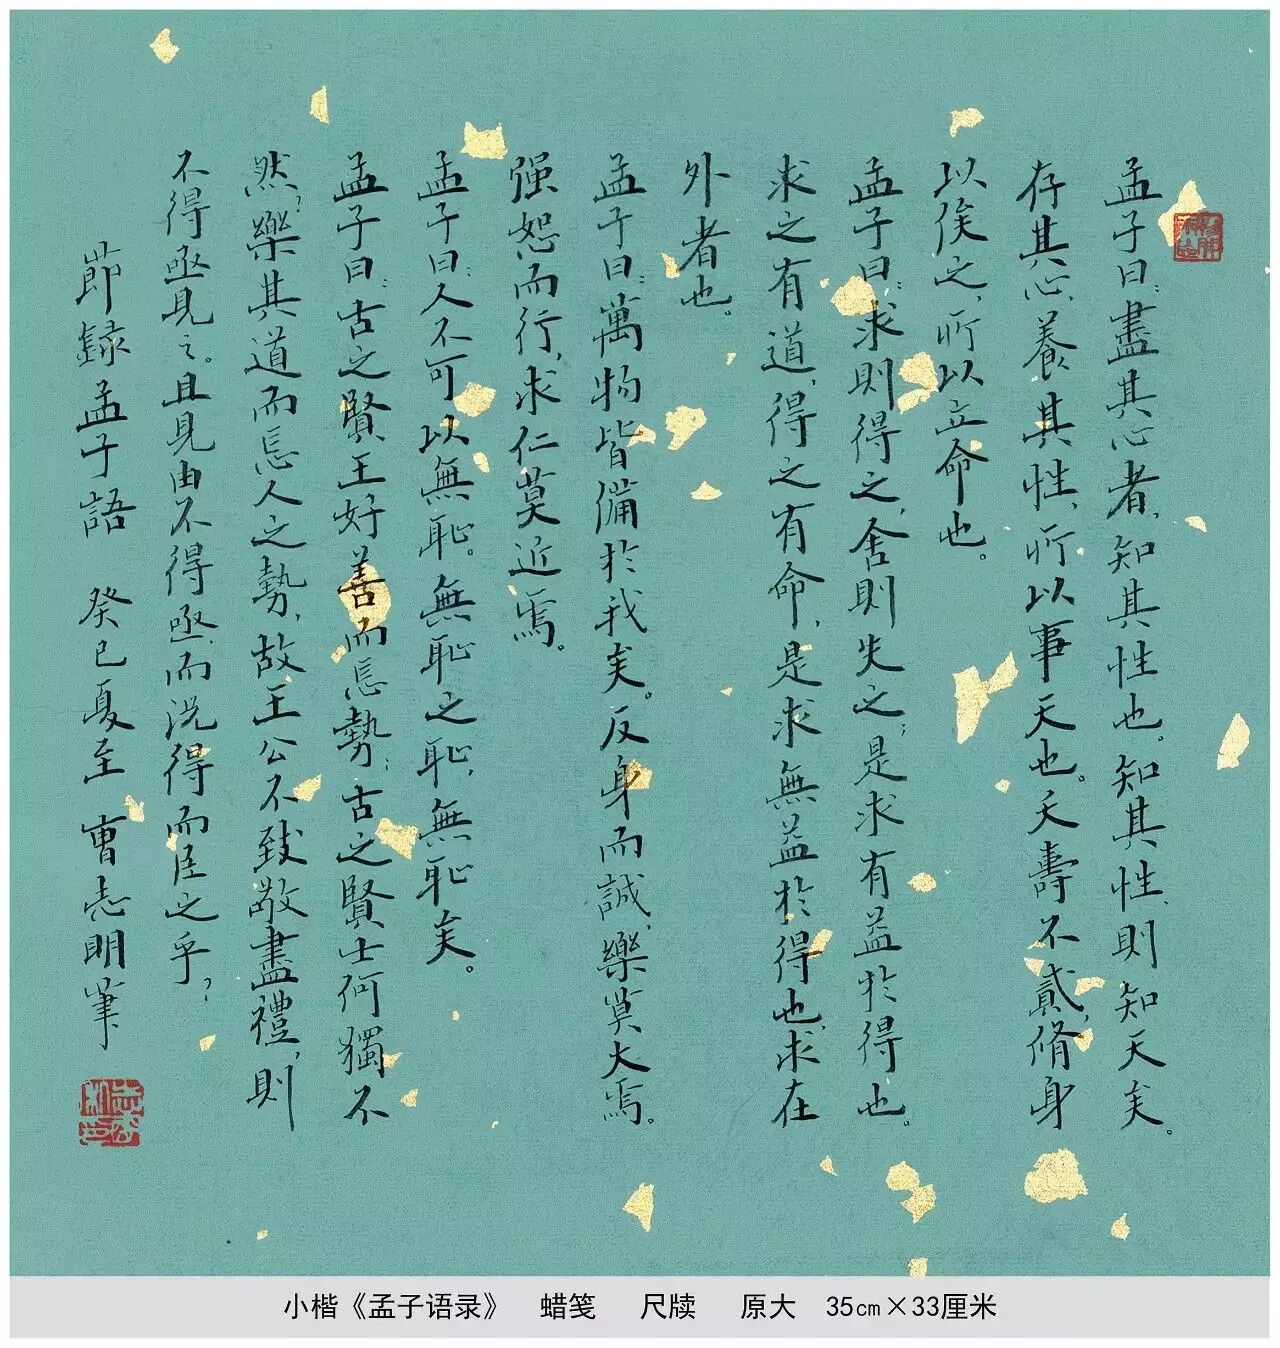 孟子曰：盡其心者，知其性也。知其性，則知天矣。
存其心，養其性，所以事天也。夭壽不貳，脩身
以俟之，所以立命也。
孟子曰：求則得之，舍則失之；是求有益於得也。
求之有道，得之有命，是求無益於得也，求在
外者也。
孟子曰：萬物皆備於我矣。反身而誠，樂莫大焉。
强恕而行，求仁莫近焉。
孟子曰：人不可以無恥。無恥之恥，無恥矣。
孟子曰：古之賢王好善而忘勢；古之賢士何獨不
然？樂其道而忘人之勢，故王公不致敬盡禮，則
不得亟見之。且見由不得亟，而況得而臣之乎？
節録孟子語 癸巳夏至 曹志明筆
小楷《孟子语录》 蜡笺 尺牍 原大 35㎝×33厘米